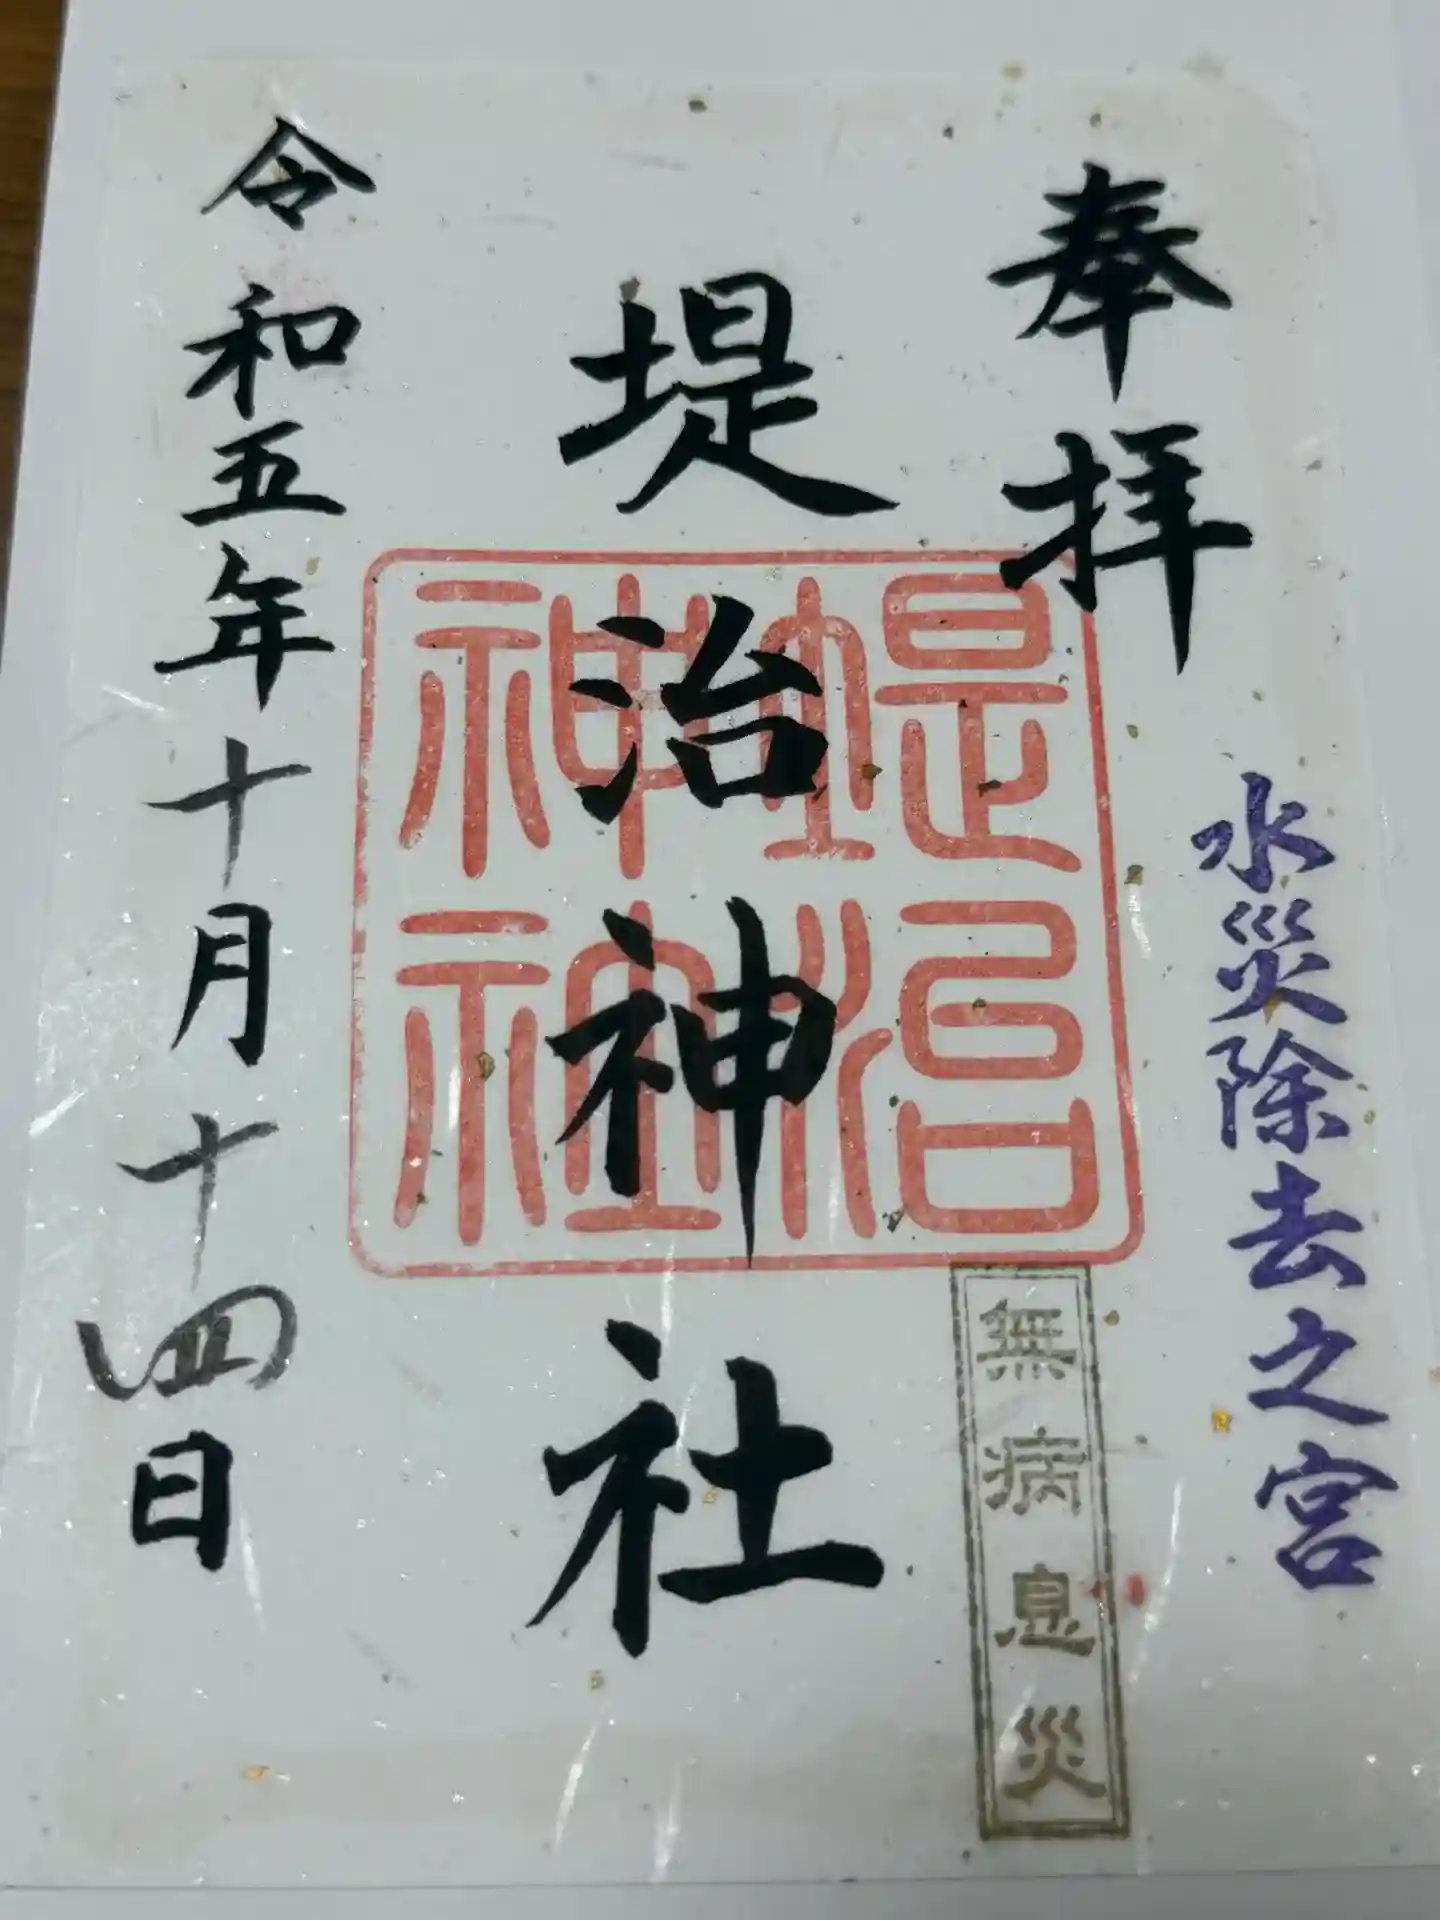 奉拝
水災除去之宮
無病息災
堤治神社
堤治神社
令和五年十月十四日